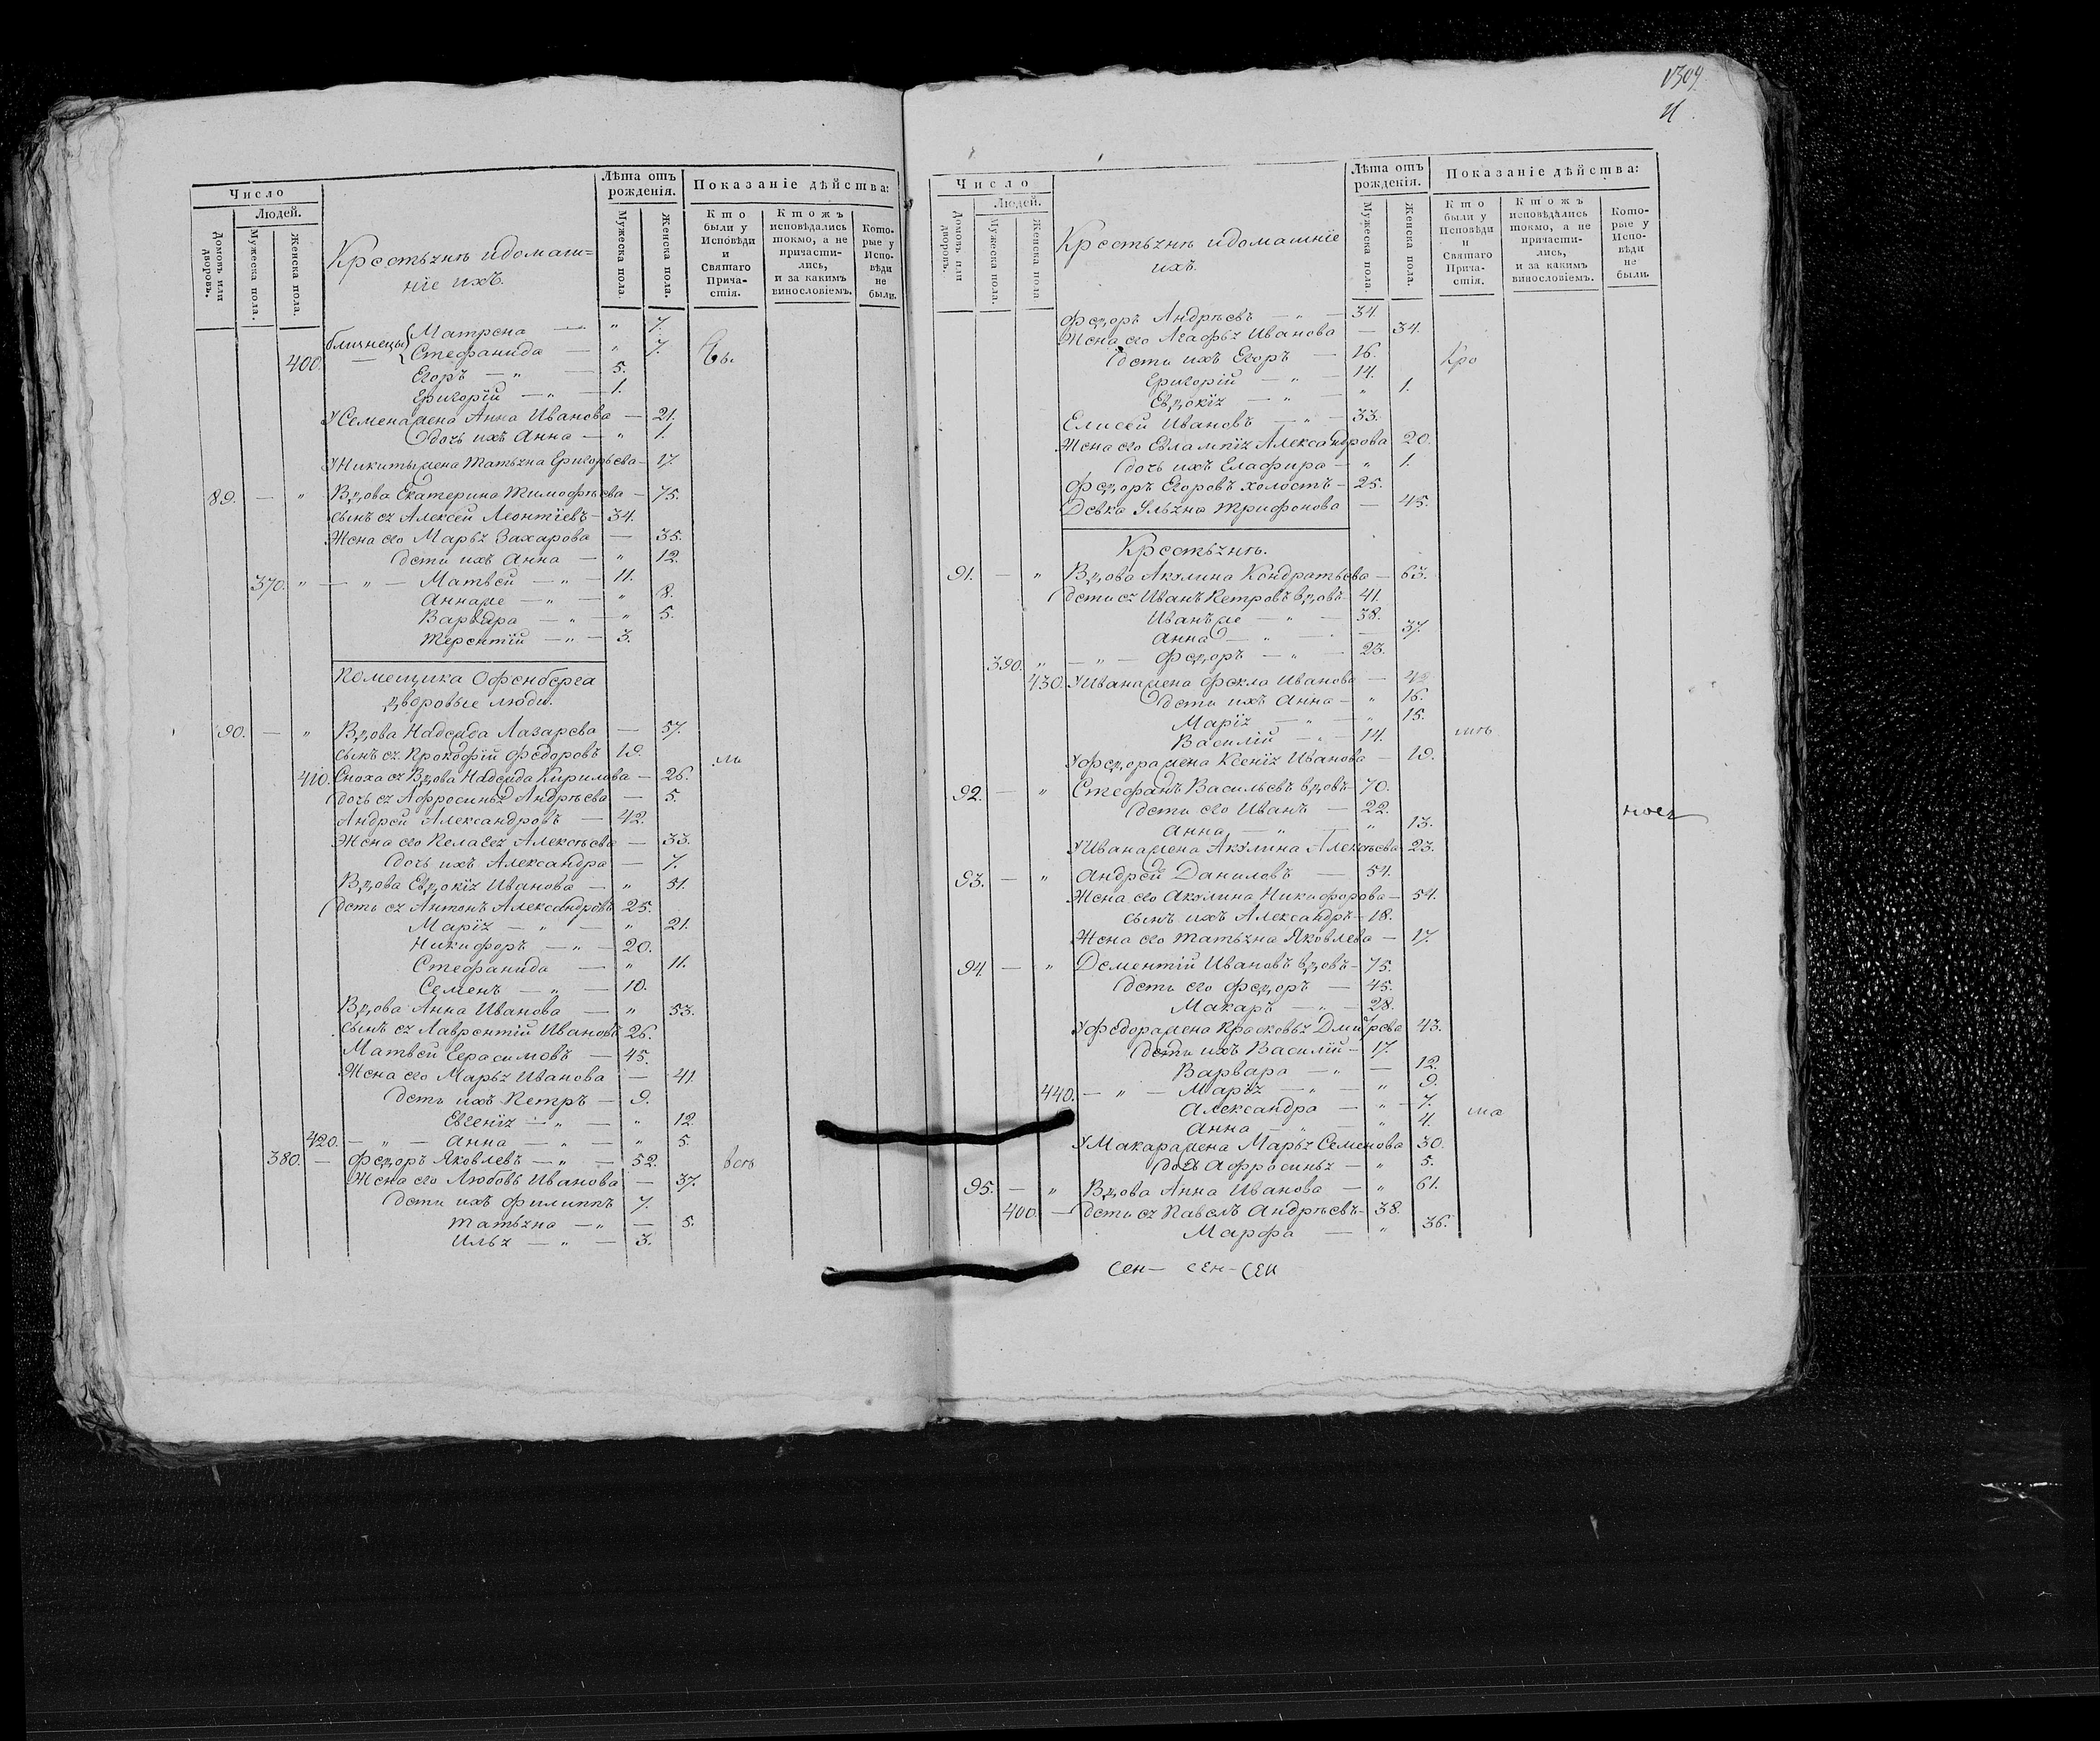 1309.
Число
Людей.
Домовъ или дворовъ.
Мужеска пола.
Женска пола.
Крестьянѣ идомаш=
ніе ихъ.
Лѣта отъ рожденія.
Мужеска пола.
Женска пола.
Показаніе дѣйства:
Кто были у Исповѣди и Святаго Причастія.
Ктожъ исповѣдались токмо, а не причастились, и за какимъ винословіемъ.
Которые у Исповѣди не были.
близнецы { Матрена — „ 7.
400. — Стефанида — „ 7. Бы.
Егоръ — „ — 5.
Григорій — „ — 1.
У Семена жена Анна Иванова — 21.
дочь ихъ Анна — „ 1.
У Никиты жена Татьяна Григорьева — 17.
89. — „ Вдова Екатерина Тимофѣева — 75.
сынъ ея Алексей Леонтіевъ — 34.
Жена его Марья Захарова — 35.
дети ихъ Анна — „ 12.
370. „ — „ — Матвей — „ — 11.
Анна же — „ — „ 8.
Варвара — „ — „ 5.
Терентій — „ — 3.
Помещика Офенберга
дворовые люди.
90. — „ Вдова Надежда Лазарева — 57.
сынъ ея Прокофій Федоровъ 19. ли
410. Сноха ея Вдова Надежда Кирилова — 26.
дочь ея Афросинья Андрѣева — 5.
Андрей Александровъ — 42.
Жена его Пелагея Алексѣева — 33.
дочь ихъ Александра — 7.
Вдова Евдокія Иванова — „ 51.
дети ея Антонъ Александровъ 25.
Марія — „ — „ 21.
Никифоръ — „ — 20.
Стефанида — „ 11.
Семенъ — „ — 10.
Вдова Анна Иванова — „ 53.
сынъ ея Лаврентій Ивановъ 26.
Матвей Герасимовъ — 45.
Жена его Марья Иванова — 41.
дети ихъ Петръ — 9.
Евгенія — „ — „ 12.
420. — „ — Анна — „ — „ 5.
380. — Федоръ Яковлевъ — „ — 52. всѣ
Жена его Любовь Иванова — 37.
дети ихъ Филиппъ 7.
Татьяна — „ — 5.
Илья — „ — 3.
Число
Людей.
Домовъ или дворовъ.
Мужеска пола.
Женска пола
Крестьянѣ идомашніе
ихъ.
Лѣта отъ рожденія.
Мужеска пола.
Женска пола.
Показаніе дѣйства:
Кто были у Исповѣди и Святаго Причастія.
Ктожъ исповѣдались токмо, а не причастились, и за какимъ винословіемъ.
Которые у Исповѣди не были.
Федоръ Андрѣевъ — „ — 34.
Жена его Агафья Иванова — 34.
дети ихъ Егоръ — 16. Кро
Григорій — „ — 14.
Евдокія — „ — „ 1.
Елисей Ивановъ — „ — 33.
Жена его Евлампія Александрова 20.
дочь ихъ Глафира — „ 1.
Федоръ Егоровъ холостъ — 25.
Девка Ульяна Трифонова — 45.
Крестьянѣ.
91. — „ Вдова Акулина Кондратьева — 63.
дети ея Иванъ Петровъ вдовъ — 41.
Иванъ же — „ — 38.
Анна — „ — 37.
390. „ — „ — Федоръ — „ — 23.
430. У Ивана жена Фекла Иванова — 42
дети ихъ Анна — „ 16.
Марія — „ — „ 15.
Василій — „ — 14. мѣ
У Федора жена Ксенія Иванова — 19.
92. — „ Стефанъ Васильевъ вдовъ — 70.
дети его Иванъ — 22. ноея
Анна — „ — „ 13.
У Ивана жена Акулина Алексѣева 23.
93. — „ Андрей Даниловъ — 54.
Жена его Акулина Никифорова — 54.
сынъ ихъ Александръ — 18.
Жена его Татьяна Яковлева — 17.
94. — „ Дементій Ивановъ вдовъ — 75.
дети его Федоръ — 45.
Макаръ — „ — 28.
У Федора жена Прасковья Дмитрева 43.
дети ихъ Василій — 17.
Варвара — „ — 12.
440. — „ — Марія — „ — „ 9.
Александра — „ — 7. ша
Анна — „ — „ 4.
У Макара жена Марья Семенова 30.
дочь Афросинья — „ 5.
95. — „ Вдова Анна Иванова — „ 61.
400. — дети ея Павелъ Андрѣевъ — 38.
Марфа — „ 36.
Сен— сен—сеи